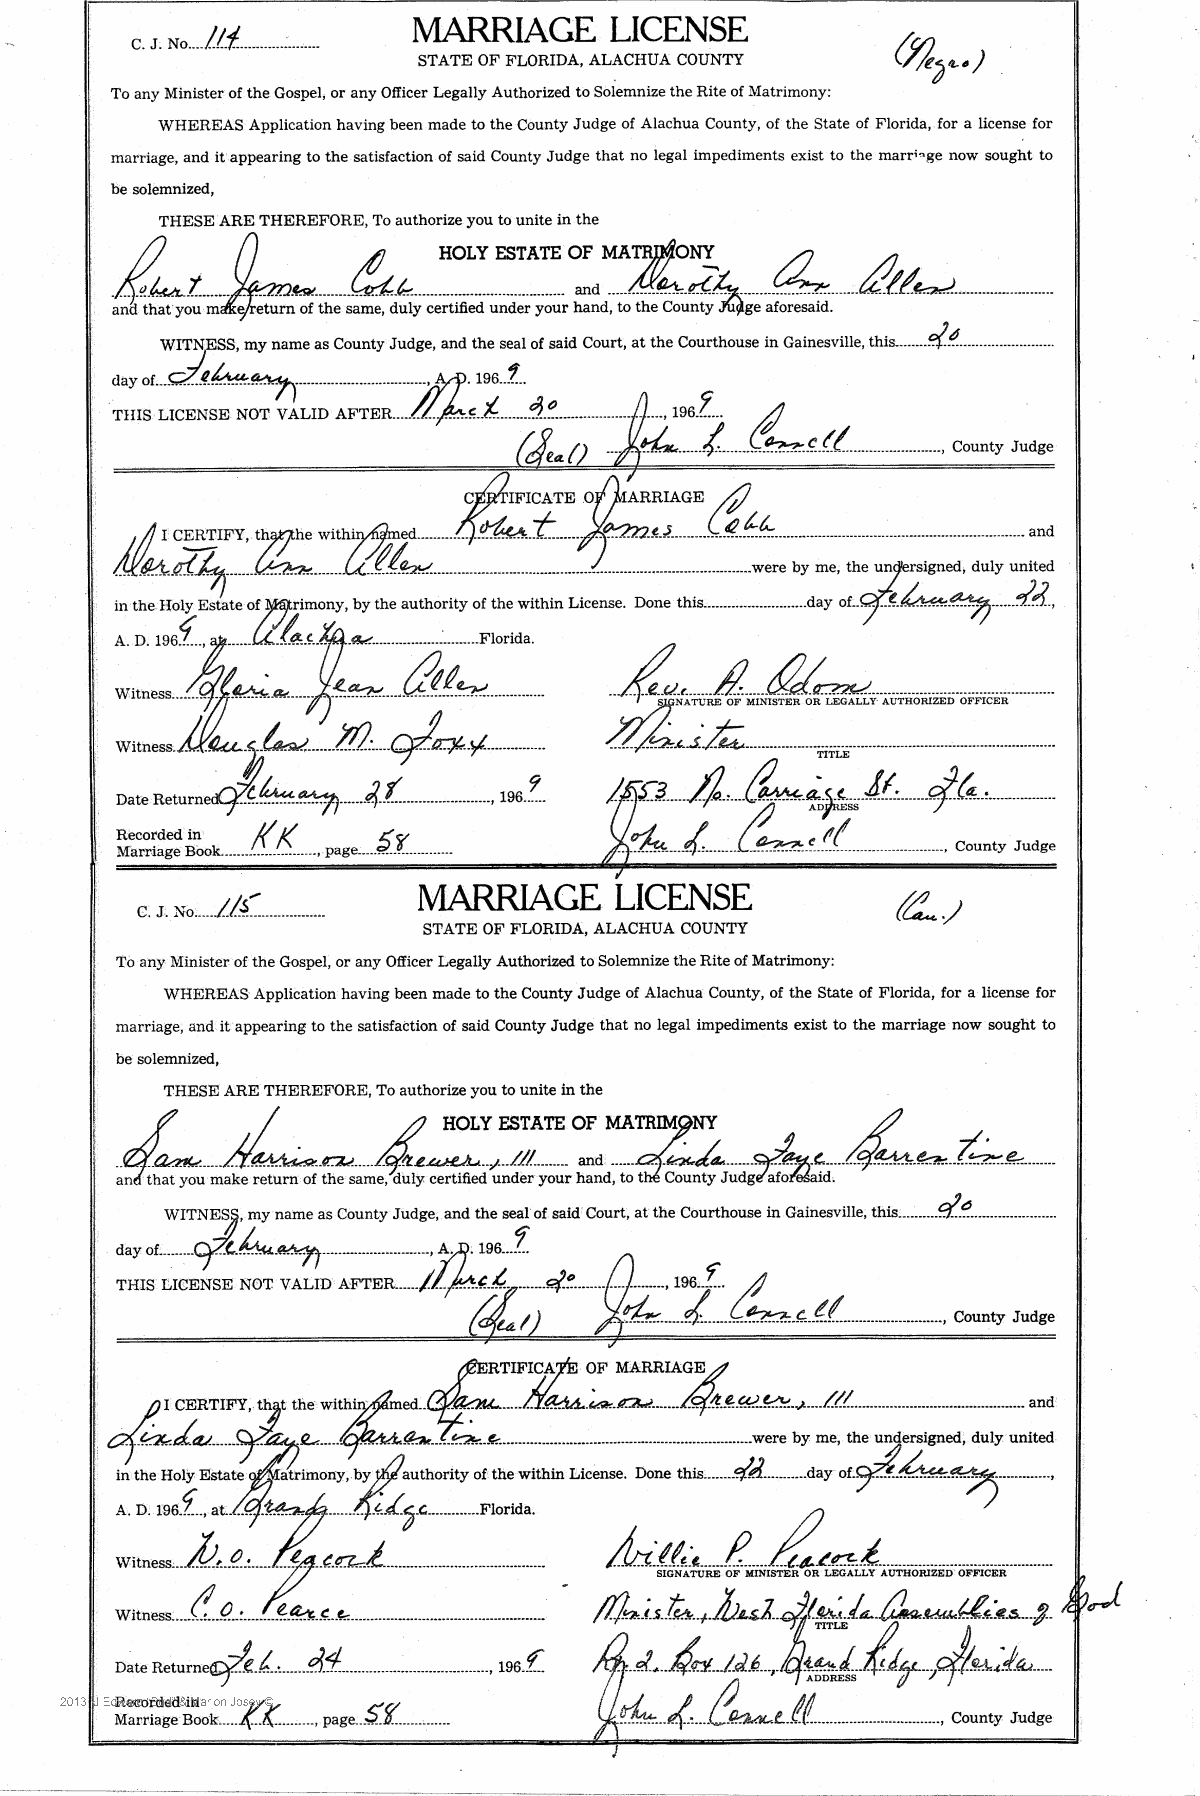 C. J. No. 114
MARRIAGE LICENSE
(Negro)
STATE OF FLORIDA, ALACHUA COUNTY
To any Minister of the Gospel, or any Officer Legally Authorized to Solemnize the Rite of Matrimony:
WHEREAS Application having been made to the County Judge of Alachua County, of the State of Florida, for a license for
marriage, and it appearing to the satisfaction of said County Judge that no legal impediments exist to the marriage now sought to
be solemnized,
THESE ARE THEREFORE, To authorize you to unite in the
HOLY ESTATE OF MATRIMONY
Robert James Cobb and Dorothy Ann Allen
and that you make return of the same, duly certified under your hand, to the County Judge aforesaid.
WITNESS, my name as County Judge, and the seal of said Court, at the Courthouse in Gainesville, this 20
day of February, A. D. 1969
THIS LICENSE NOT VALID AFTER March 20, 1969
(Seal) John L. Connell, County Judge
CERTIFICATE OF MARRIAGE
I CERTIFY, that the within named Robert James Cobb and
Dorothy Ann Allen were by me, the undersigned, duly united
in the Holy Estate of Matrimony, by the authority of the within License. Done this day of February 22,
A. D. 1969, at Alachua Florida.
Witness Gloria Jean Allen Rev. A. Odom
SIGNATURE OF MINISTER OR LEGALLY AUTHORIZED OFFICER
Witness Douglas M. Foxx Minister
TITLE
Date Returned February 28, 1969 1553 No. Carriage St. Fla.
ADDRESS
Recorded in
Marriage Book KK, page 58 John L. Connell, County Judge
C. J. No. 115
MARRIAGE LICENSE
(Cau.)
STATE OF FLORIDA, ALACHUA COUNTY
To any Minister of the Gospel, or any Officer Legally Authorized to Solemnize the Rite of Matrimony:
WHEREAS Application having been made to the County Judge of Alachua County, of the State of Florida, for a license for
marriage, and it appearing to the satisfaction of said County Judge that no legal impediments exist to the marriage now sought to
be solemnized,
THESE ARE THEREFORE, To authorize you to unite in the
HOLY ESTATE OF MATRIMONY
Sam Harrison Brewer, III and Linda Faye Barrentine
and that you make return of the same, duly certified under your hand, to the County Judge aforesaid.
WITNESS, my name as County Judge, and the seal of said Court, at the Courthouse in Gainesville, this 20
day of February, A. D. 1969
THIS LICENSE NOT VALID AFTER March 20, 1969
(Seal) John L. Connell, County Judge
CERTIFICATE OF MARRIAGE
I CERTIFY, that the within named Sam Harrison Brewer, III and
Linda Faye Barrentine were by me, the undersigned, duly united
in the Holy Estate of Matrimony, by the authority of the within License. Done this 22 day of February,
A. D. 1969, at Grand Ridge Florida.
Witness W. O. Peacock Willie P. Peacock
SIGNATURE OF MINISTER OR LEGALLY AUTHORIZED OFFICER
Witness C. O. Pearce Minister, West Florida Assemblies of God
TITLE
Date Returned Feb. 24, 1969 Rt 2, Box 126, Grand Ridge, Florida
ADDRESS
Recorded in
Marriage Book KK, page 58 John L. Connell, County Judge
2013